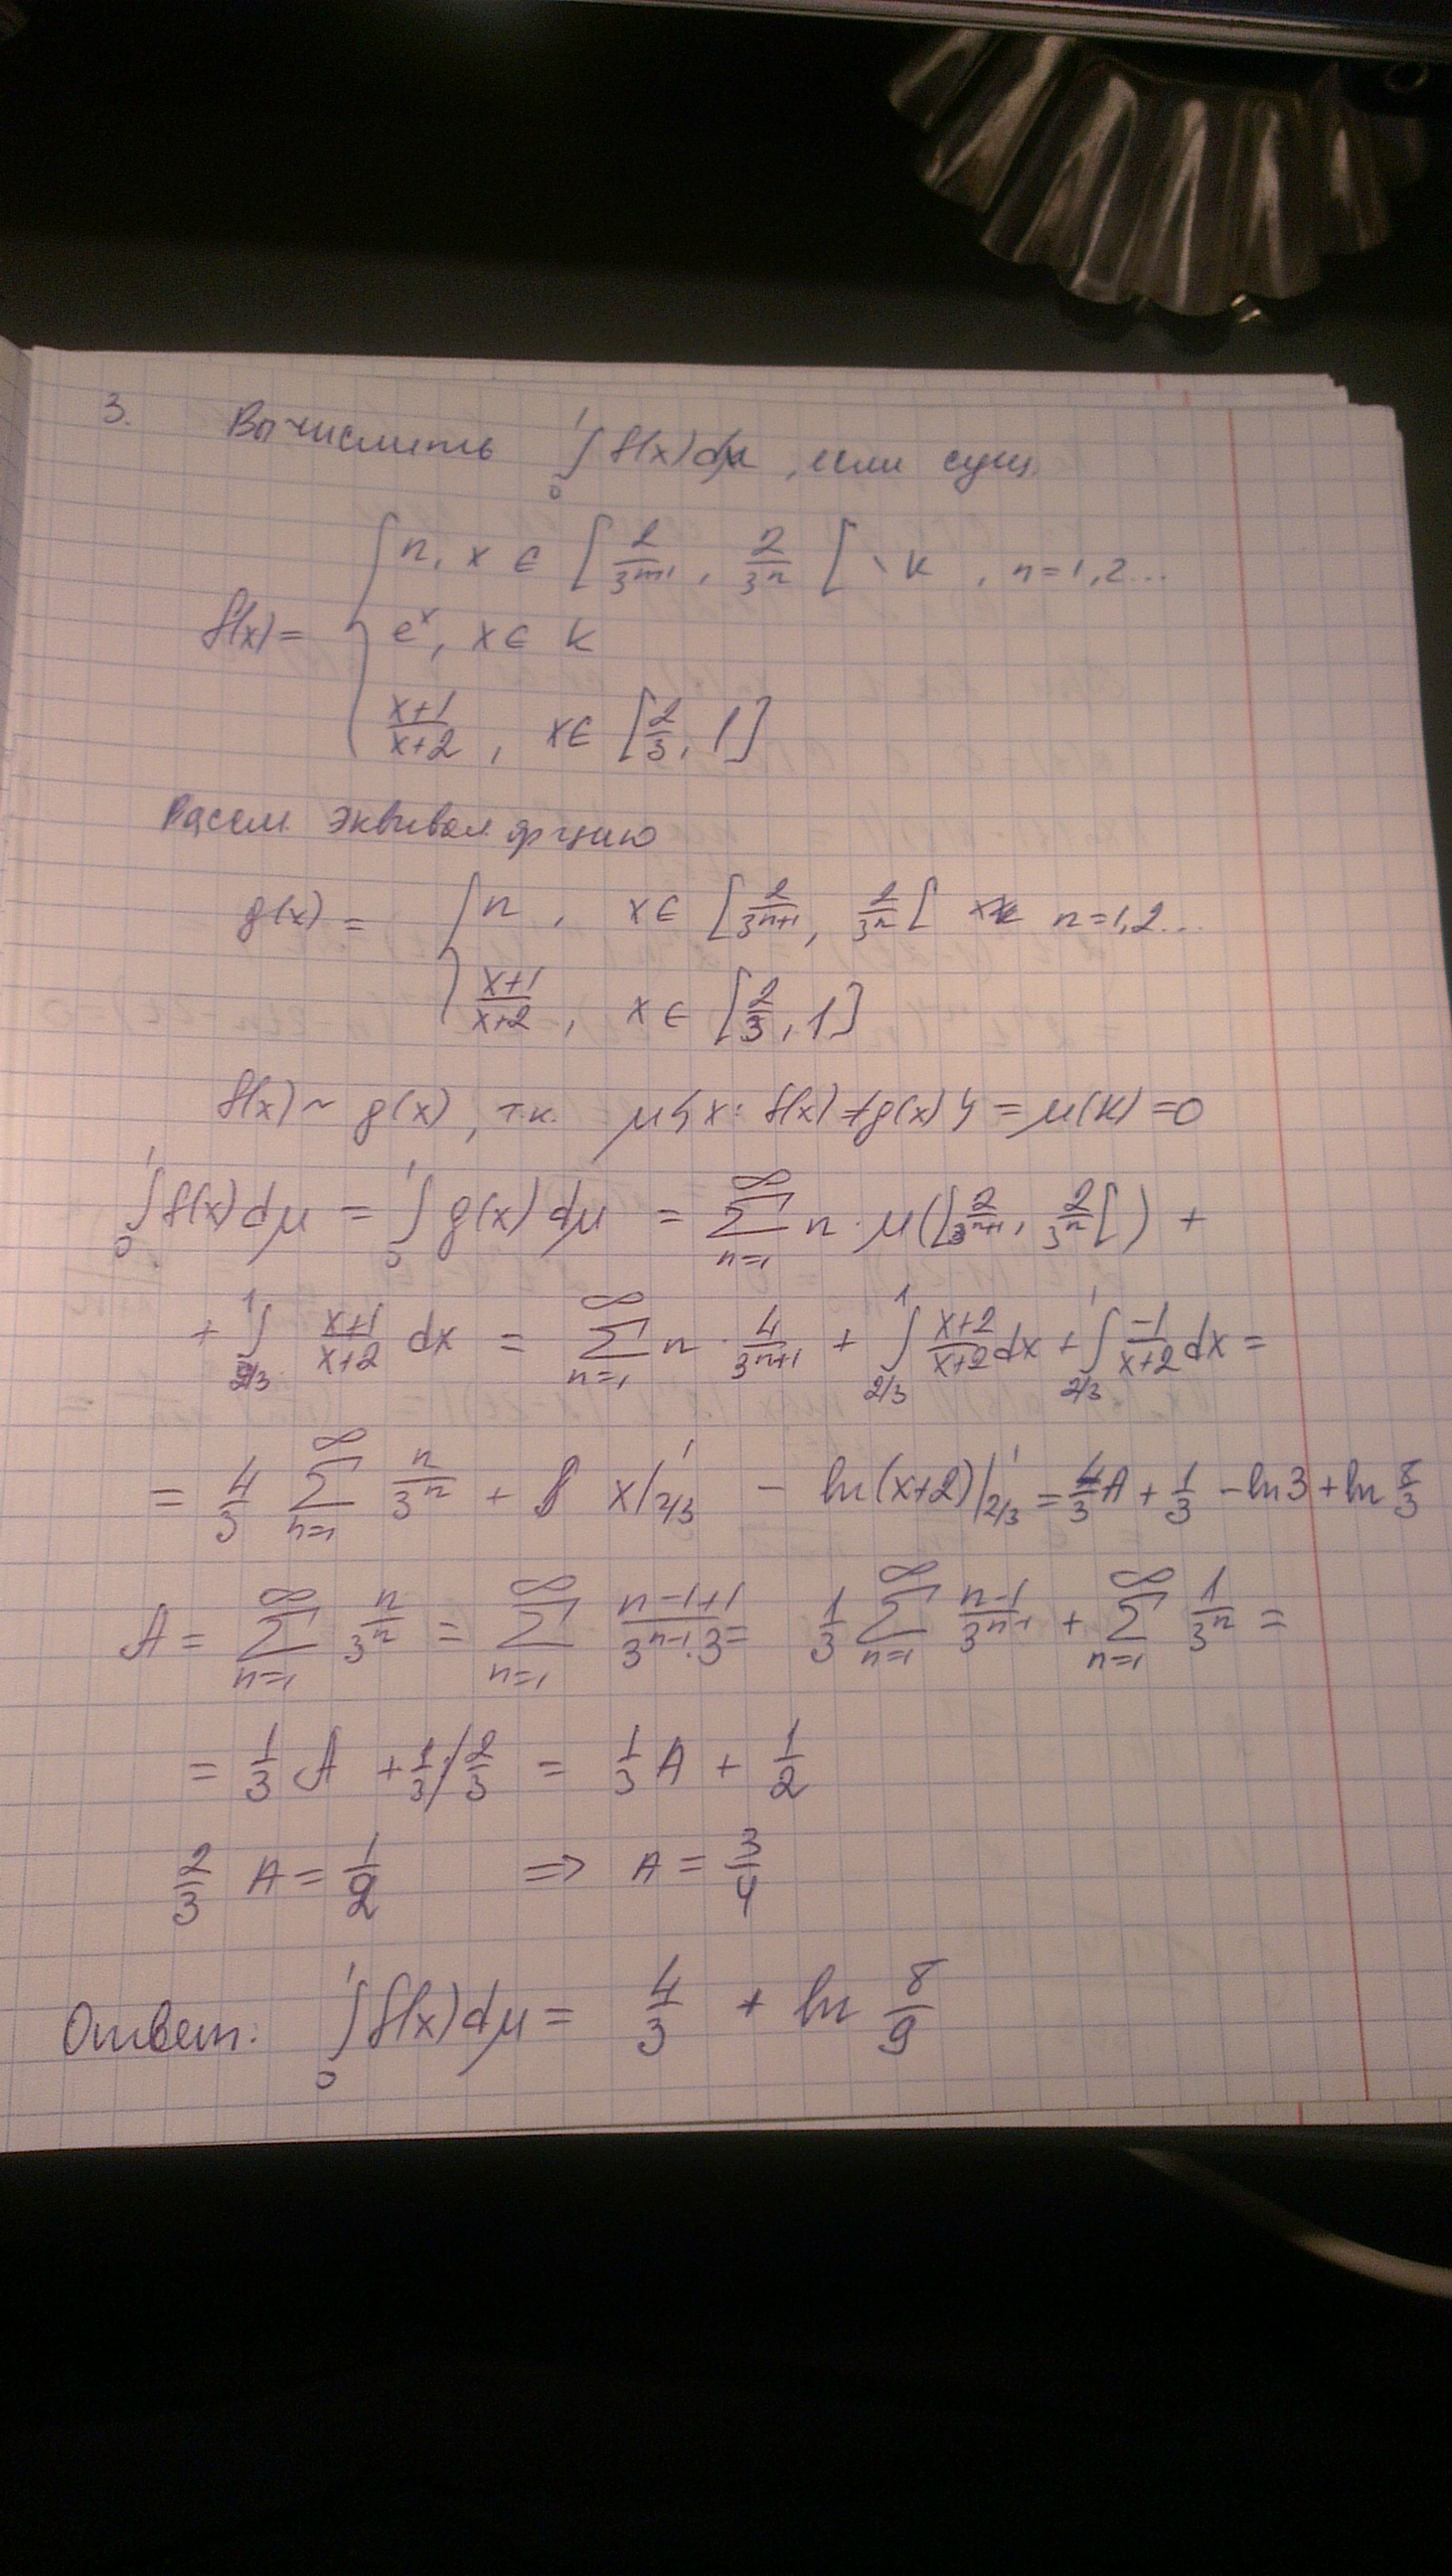 3. Вычислить ∫₀¹ f(x)dμ, если сущ.
f(x) = { n, x ∈ [2/3ⁿ⁺¹, 2/3ⁿ[ \ K, n=1,2...
eˣ, x ∈ K
(x+1)/(x+2), x ∈ [2/3, 1]
Рассм. эквивал. ф-цию
g(x) = { n, x ∈ [2/3ⁿ⁺¹, 2/3ⁿ[ n=1,2...
(x+1)/(x+2), x ∈ [2/3, 1]
f(x) ~ g(x), т.к. μ{x: f(x)≠g(x)} = μ(K) = 0
∫₀¹ f(x)dμ = ∫₀¹ g(x)dμ = ∑_{n=1}^∞ n·μ([2/3ⁿ⁺¹, 2/3ⁿ[) +
+ ∫_{2/3}^1 (x+1)/(x+2) dx = ∑_{n=1}^∞ n · 4/3ⁿ⁺¹ + ∫_{2/3}^1 (x+2)/(x+2) dx + ∫_{2/3}^1 -1/(x+2) dx =
= 4/3 ∑_{n=1}^∞ n/3ⁿ + x|_{2/3}^1 - ln(x+2)|_{2/3}^1 = 4/3 A + 1/3 - ln3 + ln 8/3
A = ∑_{n=1}^∞ n/3ⁿ = ∑_{n=1}^∞ (n-1+1)/(3ⁿ⁻¹·3) = 1/3 ∑_{n=1}^∞ (n-1)/3ⁿ⁻¹ + ∑_{n=1}^∞ 1/3ⁿ =
= 1/3 A + 1/3 / 2/3 = 1/3 A + 1/2
2/3 A = 1/2 ⇒ A = 3/4
Ответ: ∫₀¹ f(x)dμ = 4/3 + ln 8/9